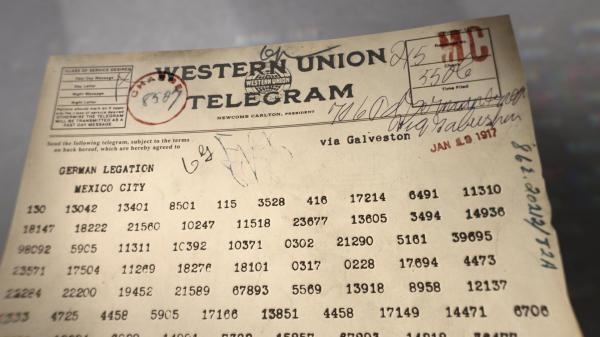 WESTERN UNION
TELEGRAM
NEWCOMB CARLTON, PRESIDENT
CLASS OF SERVICE DESIRED
Fast Day Message
Day Letter
Night Message
Night Letter
OTHERWISE THE TELEGRAM
WILL BE TRANSMITTED AS A
FAST DAY MESSAGE
CHARGE
8587
MC
245
5506
Time Filed
Send the following telegram, subject to the terms
on back hereof, which are hereby agreed to
via Galveston
JAN 19 1917
GERMAN LEGATION
MEXICO CITY
130 13042 13401 8501 115 3528 416 17214 6491 11310
18147 18222 21560 10247 11518 23677 13605 3494 14936
98092 5905 11311 10392 10371 0302 21290 5161 39695
23571 17504 11269 18276 18101 0317 0228 17694 4473
22284 22200 19452 21589 67893 5569 13918 8958 12137
1333 4725 4458 5905 17166 13851 4458 17149 14471 6706